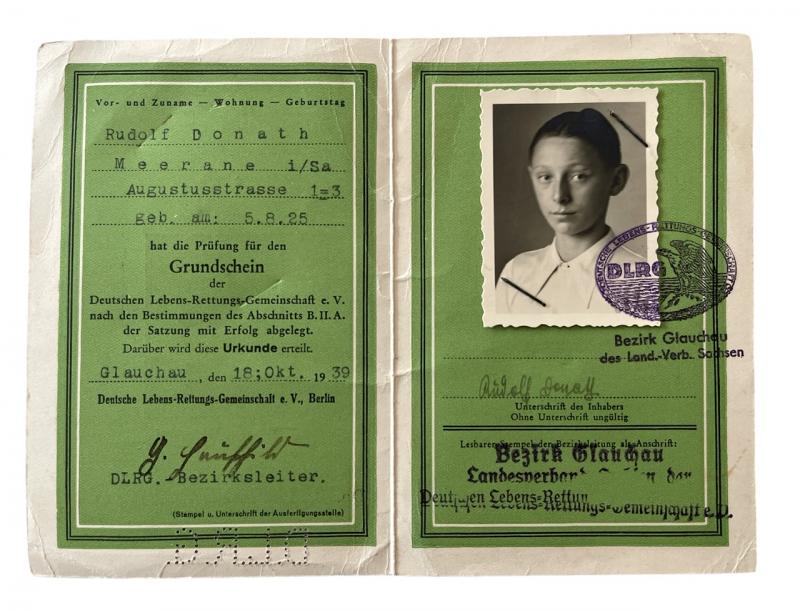 Vor- und Zuname — Wohnung — Geburtstag
Rudolf Donath
Meerane i/Sa
Augustusstrasse 1=3
geb. am: 5.8.25
hat die Prüfung für den
Grundschein
der
Deutschen Lebens-Rettungs-Gemeinschaft e. V.
nach den Bestimmungen des Abschnitts B. II. A.
der Satzung mit Erfolg abgelegt.
Darüber wird diese Urkunde erteilt.
Glauchau, den 18;Okt. 1939
Deutsche Lebens-Rettungs-Gemeinschaft e. V., Berlin
DLRG.-Bezirksleiter.
(Stempel u. Unterschrift der Ausfertigungsstelle)
DEUTSCHE LEBENS-RETTUNGS-GEMEINSCHAFT
DLRG
Bezirk Glauchau
des Land.-Verb. Sachsen
Rudolf Donath
Unterschrift des Inhabers
Ohne Unterschrift ungültig
Lesbarer Stempel der Bezirksleitung als Anschrift:
Bezirk Glauchau
Landesverband der
Deutschen Lebens-Rettun
-Rettungs-Gemeinschaft e.V.